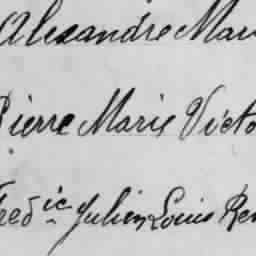 Alexandre Mari
Pierre Marie Victo
Fred^ic Julien Louis Ren